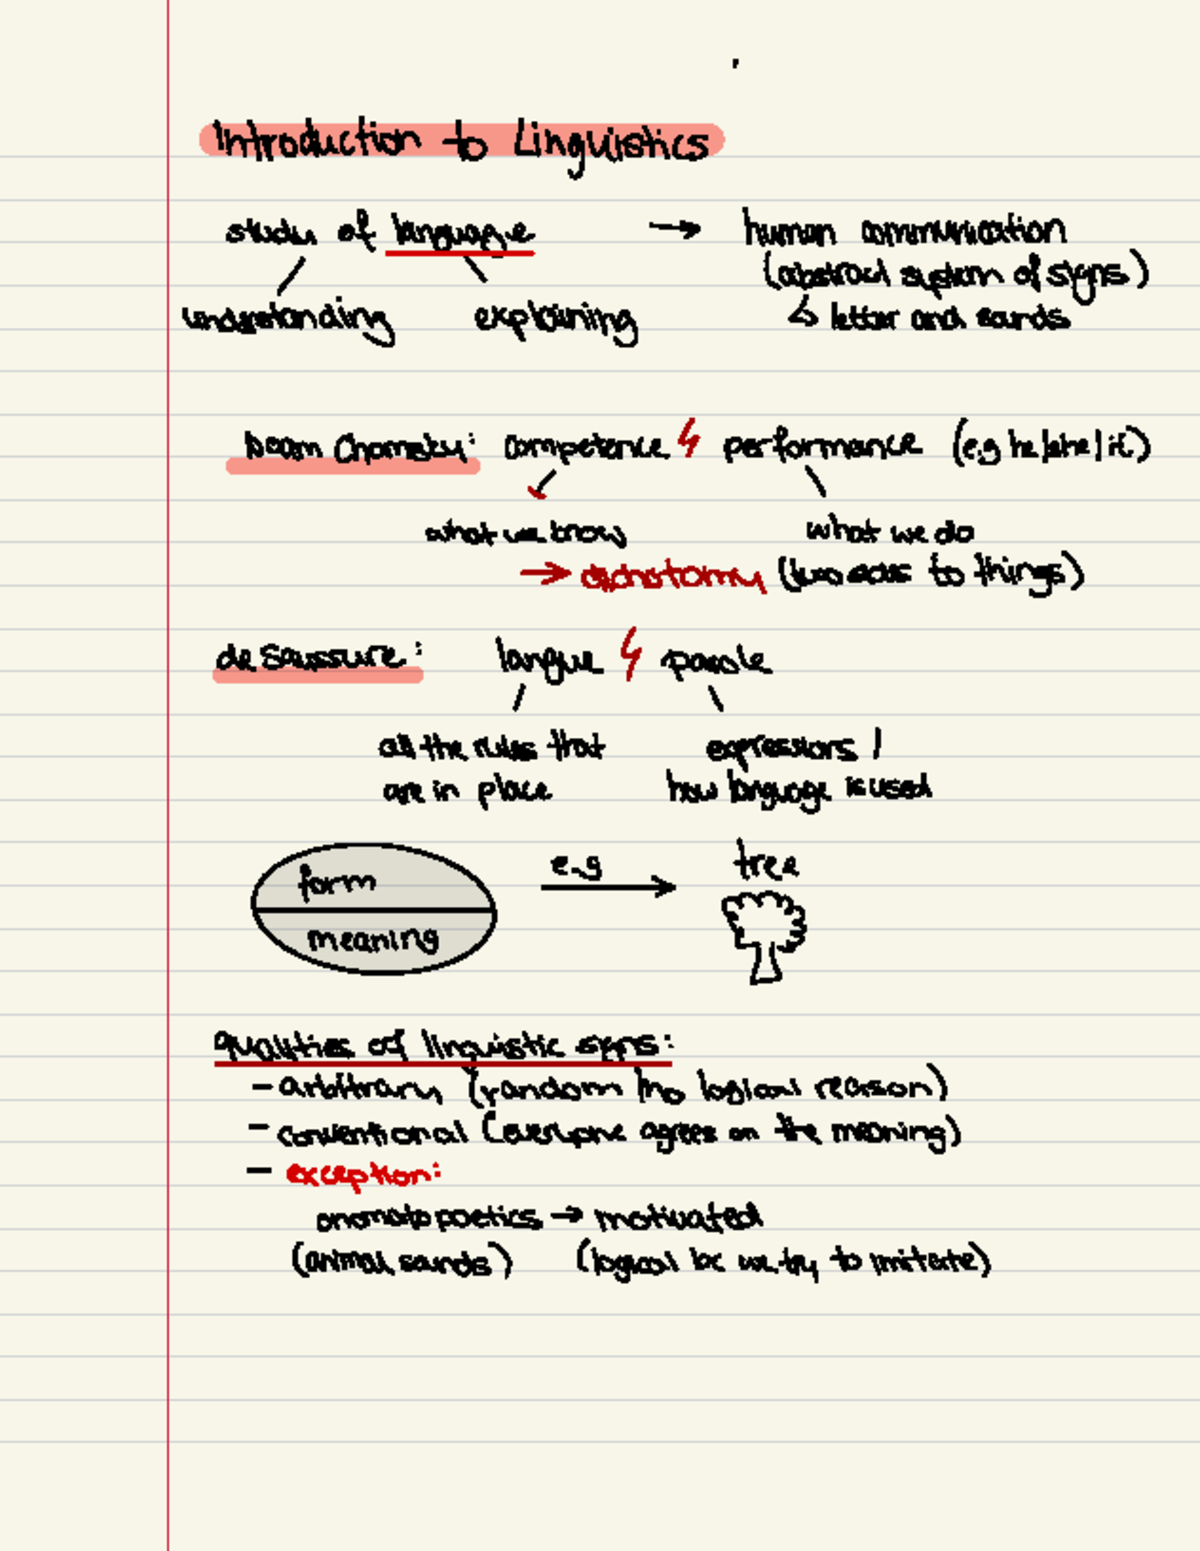 Introduction to Linguistics
study of language → human communication
(abstract system of signs)
understanding explaining ↳ letter and sounds
Noam Chomsky: competence ↯ performance (e.g he/she/it)
what we know what we do
→ dichotomy (two sides to things)
de Saussure: langue ↯ parole
all the rules that expressions /
are in place how language is used
form e.g tree
meaning
qualities of linguistic signs:
- arbitrary (random / no logical reason)
- conventional (everyone agrees on the meaning)
- exception:
onomatopoetics → motivated
(animal sounds) (logical bc we try to imitate)